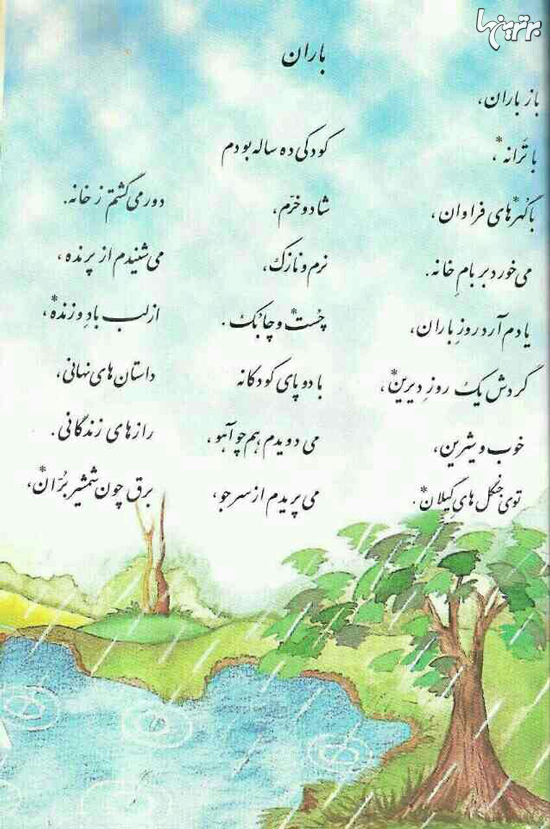 برترینها
باران
باز باران،
با تَرانه*،
با گُهر*های فراوان،
می خورد بر بامِ خانه.
یادم آرد روزِ باران،
گردش یک روزِ دیرین*،
خوب و شیرین،
توی جنگل های گیلان*.
کودکی ده ساله بودم
شاد و خرّم،
نرم و نازک،
چُست* و چابُک.
با دو پای کودکانه
می دویدم هم چو آهو،
می پریدم از سرِ جو،
دور می گشتم ز خانه.
می شنیدم از پرنده،
از لب بادِ وزنده*،
داستان های نهانی،
رازهای زندگانی.
برق چون شمشیر بُرّان*،